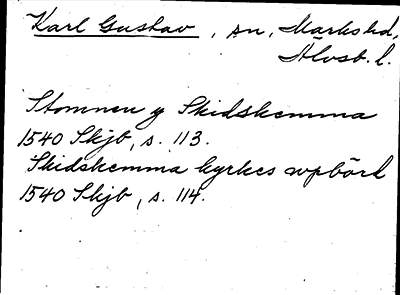 Karl Gustav, sn, Marks hd,
Älvsb. l.
Stommen y Skidskemma
1540 Skjb, s. 113.
Skidskemma kyrkes wpbörd
1540 Skjb, s. 114.